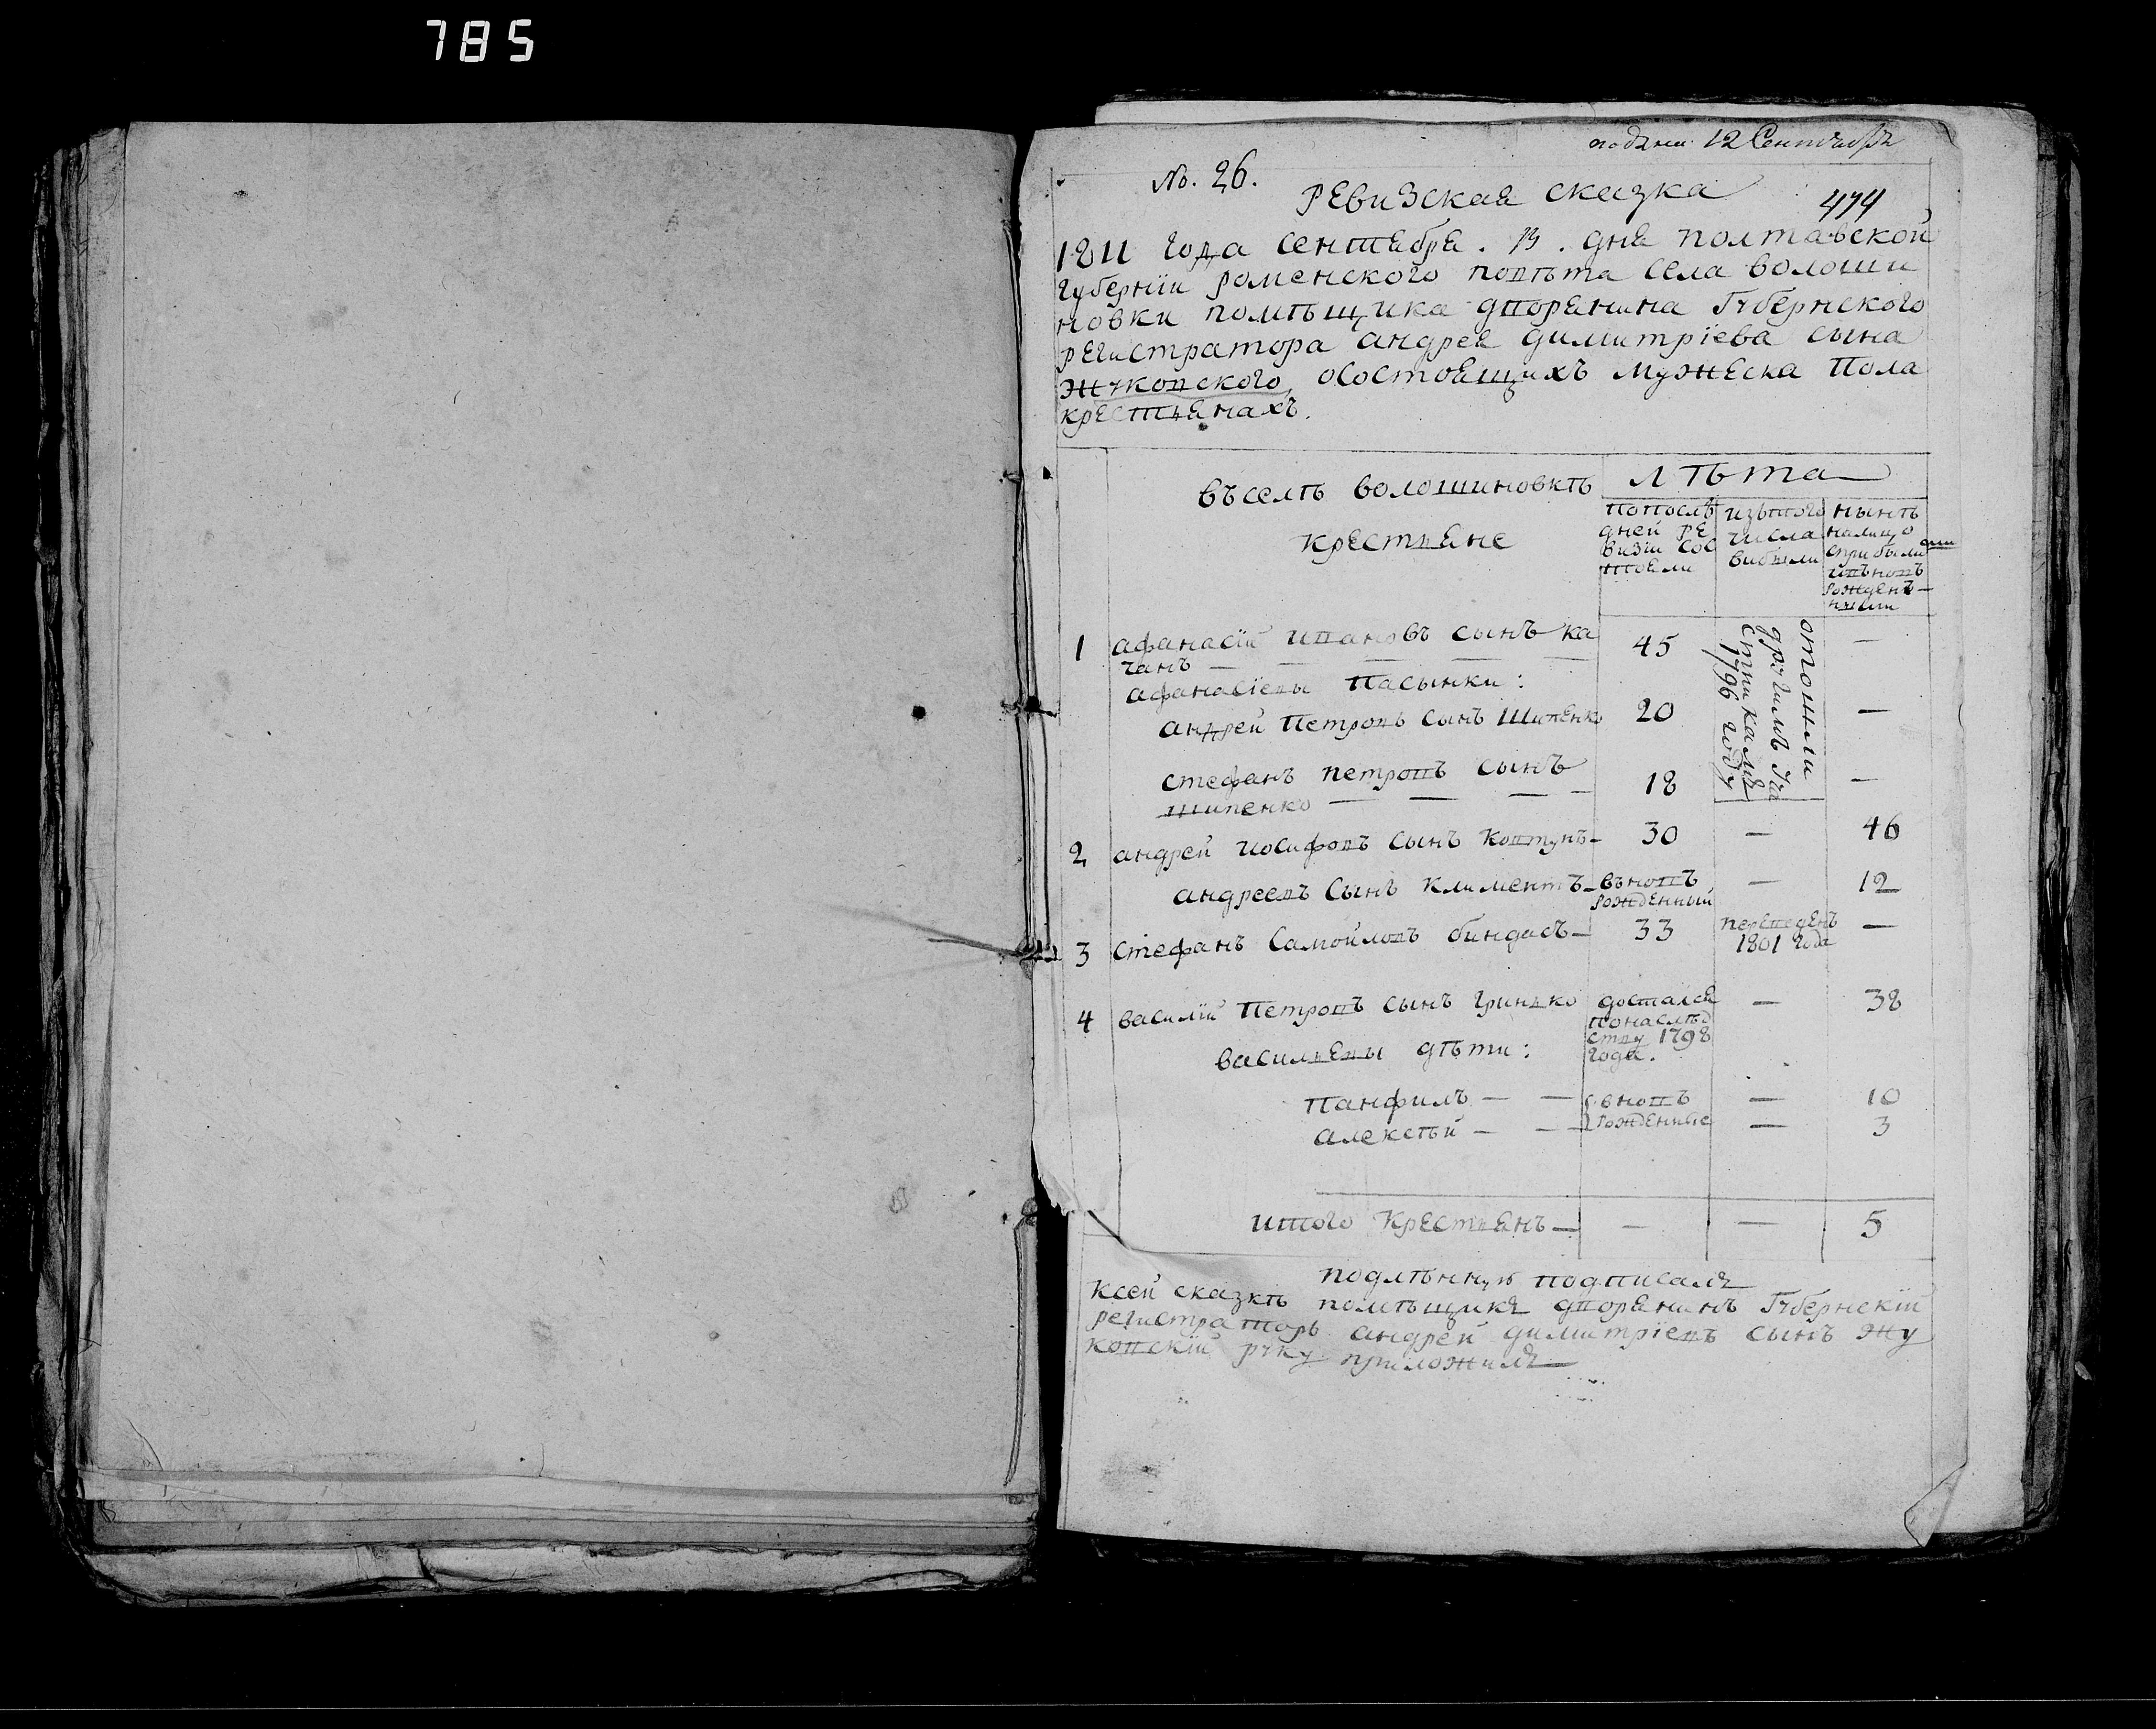 785
подана 12 Сентября
№. 26.
Ревизская сказка
474
1811 года сентября . 13 . дня полтавской
губернїи роменского повѣта села волоши
новки помѣщика дворянина Губернского
регистратора андрея димитрїева сына
Жуковского, осостоящихъ мужеска пола
крестьянахъ.
въселѣ волошиновкѣ
крестьяне
лѣта
попослѣ
дней ре
визїи сос
тояли
изътого
числа
выбыли
нынѣ
налицо
сприбылыми
ивъновъ
рожден
ными
1 афанасїй ивановъ сынъ ка 45 —
чанъ — — — — —
афанасїевы пасынки:
андрей Петровъ сынъ Шипенко 20 —
стефанъ петровъ сынъ 18 —
шипенко — — — —
отошли
другимъ уча
стникамъ
1796 году
2 андрей иосифовъ сынъ ковтунъ — 30 — 46
андреевъ сынъ климентъ — вновъ рожденный — 12
3 Стефанъ Самойловъ биндасъ — 33 переведенъ 1801 года —
4 василїй Петровъ сынъ гринько достался — 38
понаслѣд
ству 1798
года.
васильевы дѣти:
Панфилъ — — вновъ — 10
алексѣй — — рожденные — 3
итого крестьянъ — — — 5
подлѣнную подписалъ
ксей сказкѣ помѣщикъ дворянинъ Губернскїй
регистраторъ андрей димитрїевъ сынъ Жу
ковскїй руку приложилъ